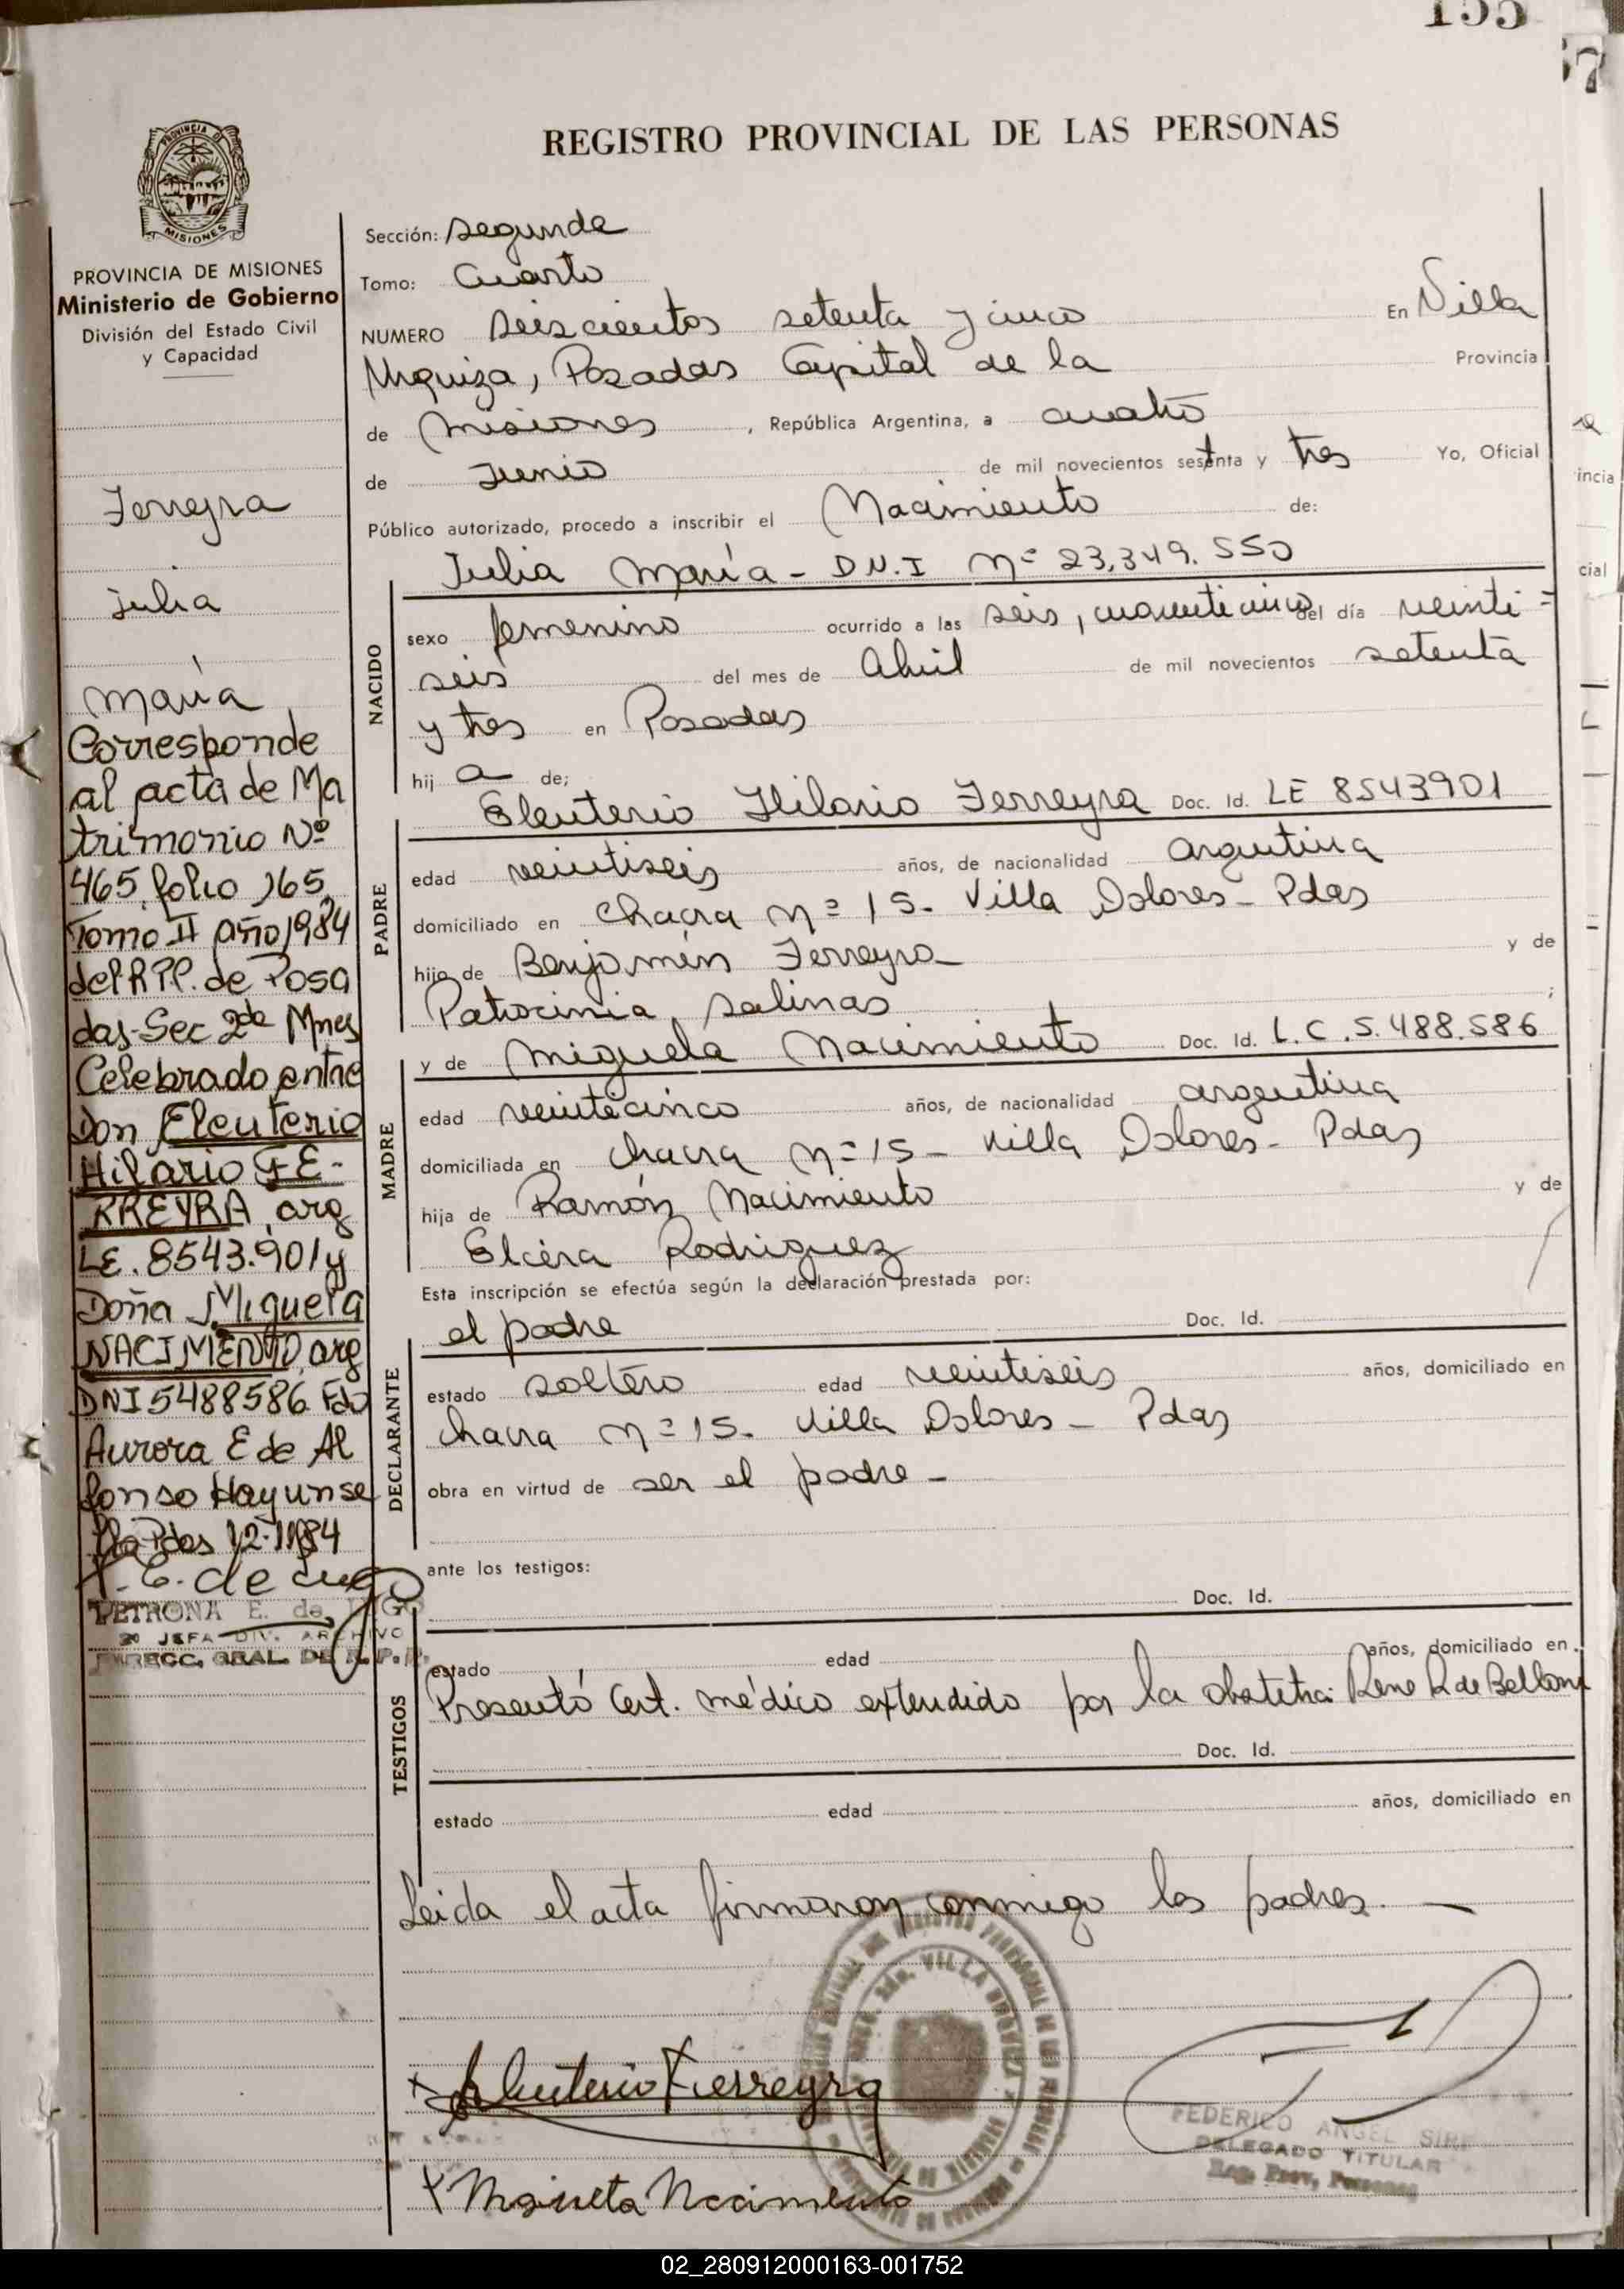 155
57
REGISTRO PROVINCIAL DE LAS PERSONAS
PROVINCIA DE
MISIONES
PROVINCIA DE MISIONES
Ministerio de Gobierno
División del Estado Civil
y Capacidad
Ferreyra
Julia
María
Corresponde
al acta de Ma
trimonio Nº
465 folio 165
Tomo II año 1984
del R.P.P. de Posa
das-Sec 2da Mnes
Celebrado entre
Don Eleuterio
Hilario FE-
RREYRA, arg
LE. 8543.901 y
Doña Miguela
NACIMIENTO, arg
DNI 5488586 Fdo
Aurora E de Al
fonso Hay un se
llo Pdas 12.11.84
PETRONA E. de LUGO
2º JEFA DIV. ARCHIVO
DIRECC. GRAL. DE R.P.P.
Sección: segunda
Tomo: Cuarto
NUMERO seiscientos setenta y cinco En Villa
Urquiza, Posadas Capital de la Provincia
de Misiones, República Argentina, a cuatro
de Junio de mil novecientos setenta y tres Yo, Oficial
Público autorizado, procedo a inscribir el Nacimiento de:
Julia María - D.N.I Nº 23.349.550
NACIDO
sexo femenino ocurrido a las seis, cuarenticinco del día veinti=
seis del mes de Abril de mil novecientos setenta
y tres en Posadas
hij a de;
Eleuterio Hilario Ferreyra Doc. Id. LE 8543901
PADRE
edad veintiseis años, de nacionalidad argentina
domiciliado en Chacra Nº 15- Villa Dolores- Pdas
hijo de Benjamín Ferreyra y de
Patrocinia Salinas ;
y de Miguela Nacimiento Doc. Id. L.C. 5.488.586
MADRE
edad veinticinco años, de nacionalidad argentina
domiciliada en Chacra Nº 15- Villa Dolores- Pdas
hija de Ramón Nacimiento y de
Elcira Rodriguez
Esta inscripción se efectúa según la declaración prestada por:
el padre Doc. Id.
DECLARANTE
estado soltero edad veintiseis años, domiciliado en
Chacra Nº 15- Villa Dolores- Pdas
obra en virtud de ser el padre-
ante los testigos:
Doc. Id.
TESTIGOS
estado edad años, domiciliado en
Presentó Cert. médico extendido por la obstetra: Rene R de Bellone
Doc. Id.
estado edad años, domiciliado en
Leida el acta firmaron conmigo los padres.-
VILLA URQUIZA
Eleuterio Ferreyra
FEDERICO ANGEL
DELEGADO TITULAR
Reg. Prov. Personas
Miguela Nacimiento
incia
cial
02_280912000163-001752